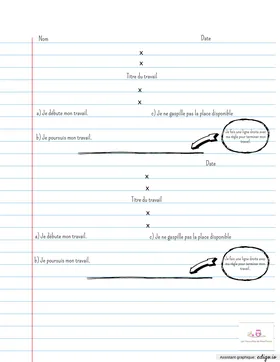 Nom Date
x
x
Titre du travail
x
x
a) Je débute mon travail. c) Je ne gaspille pas la place disponible
b) Je poursuis mon travail.
Je fais une ligne droite avec
ma règle pour terminer mon
travail.
Date
x
x
Titre du travail
x
x
a) Je débute mon travail. c) Je ne gaspille pas la place disponible
b) Je poursuis mon travail.
Je fais une ligne droite avec
ma règle pour terminer mon
travail.
Assistant graphique :